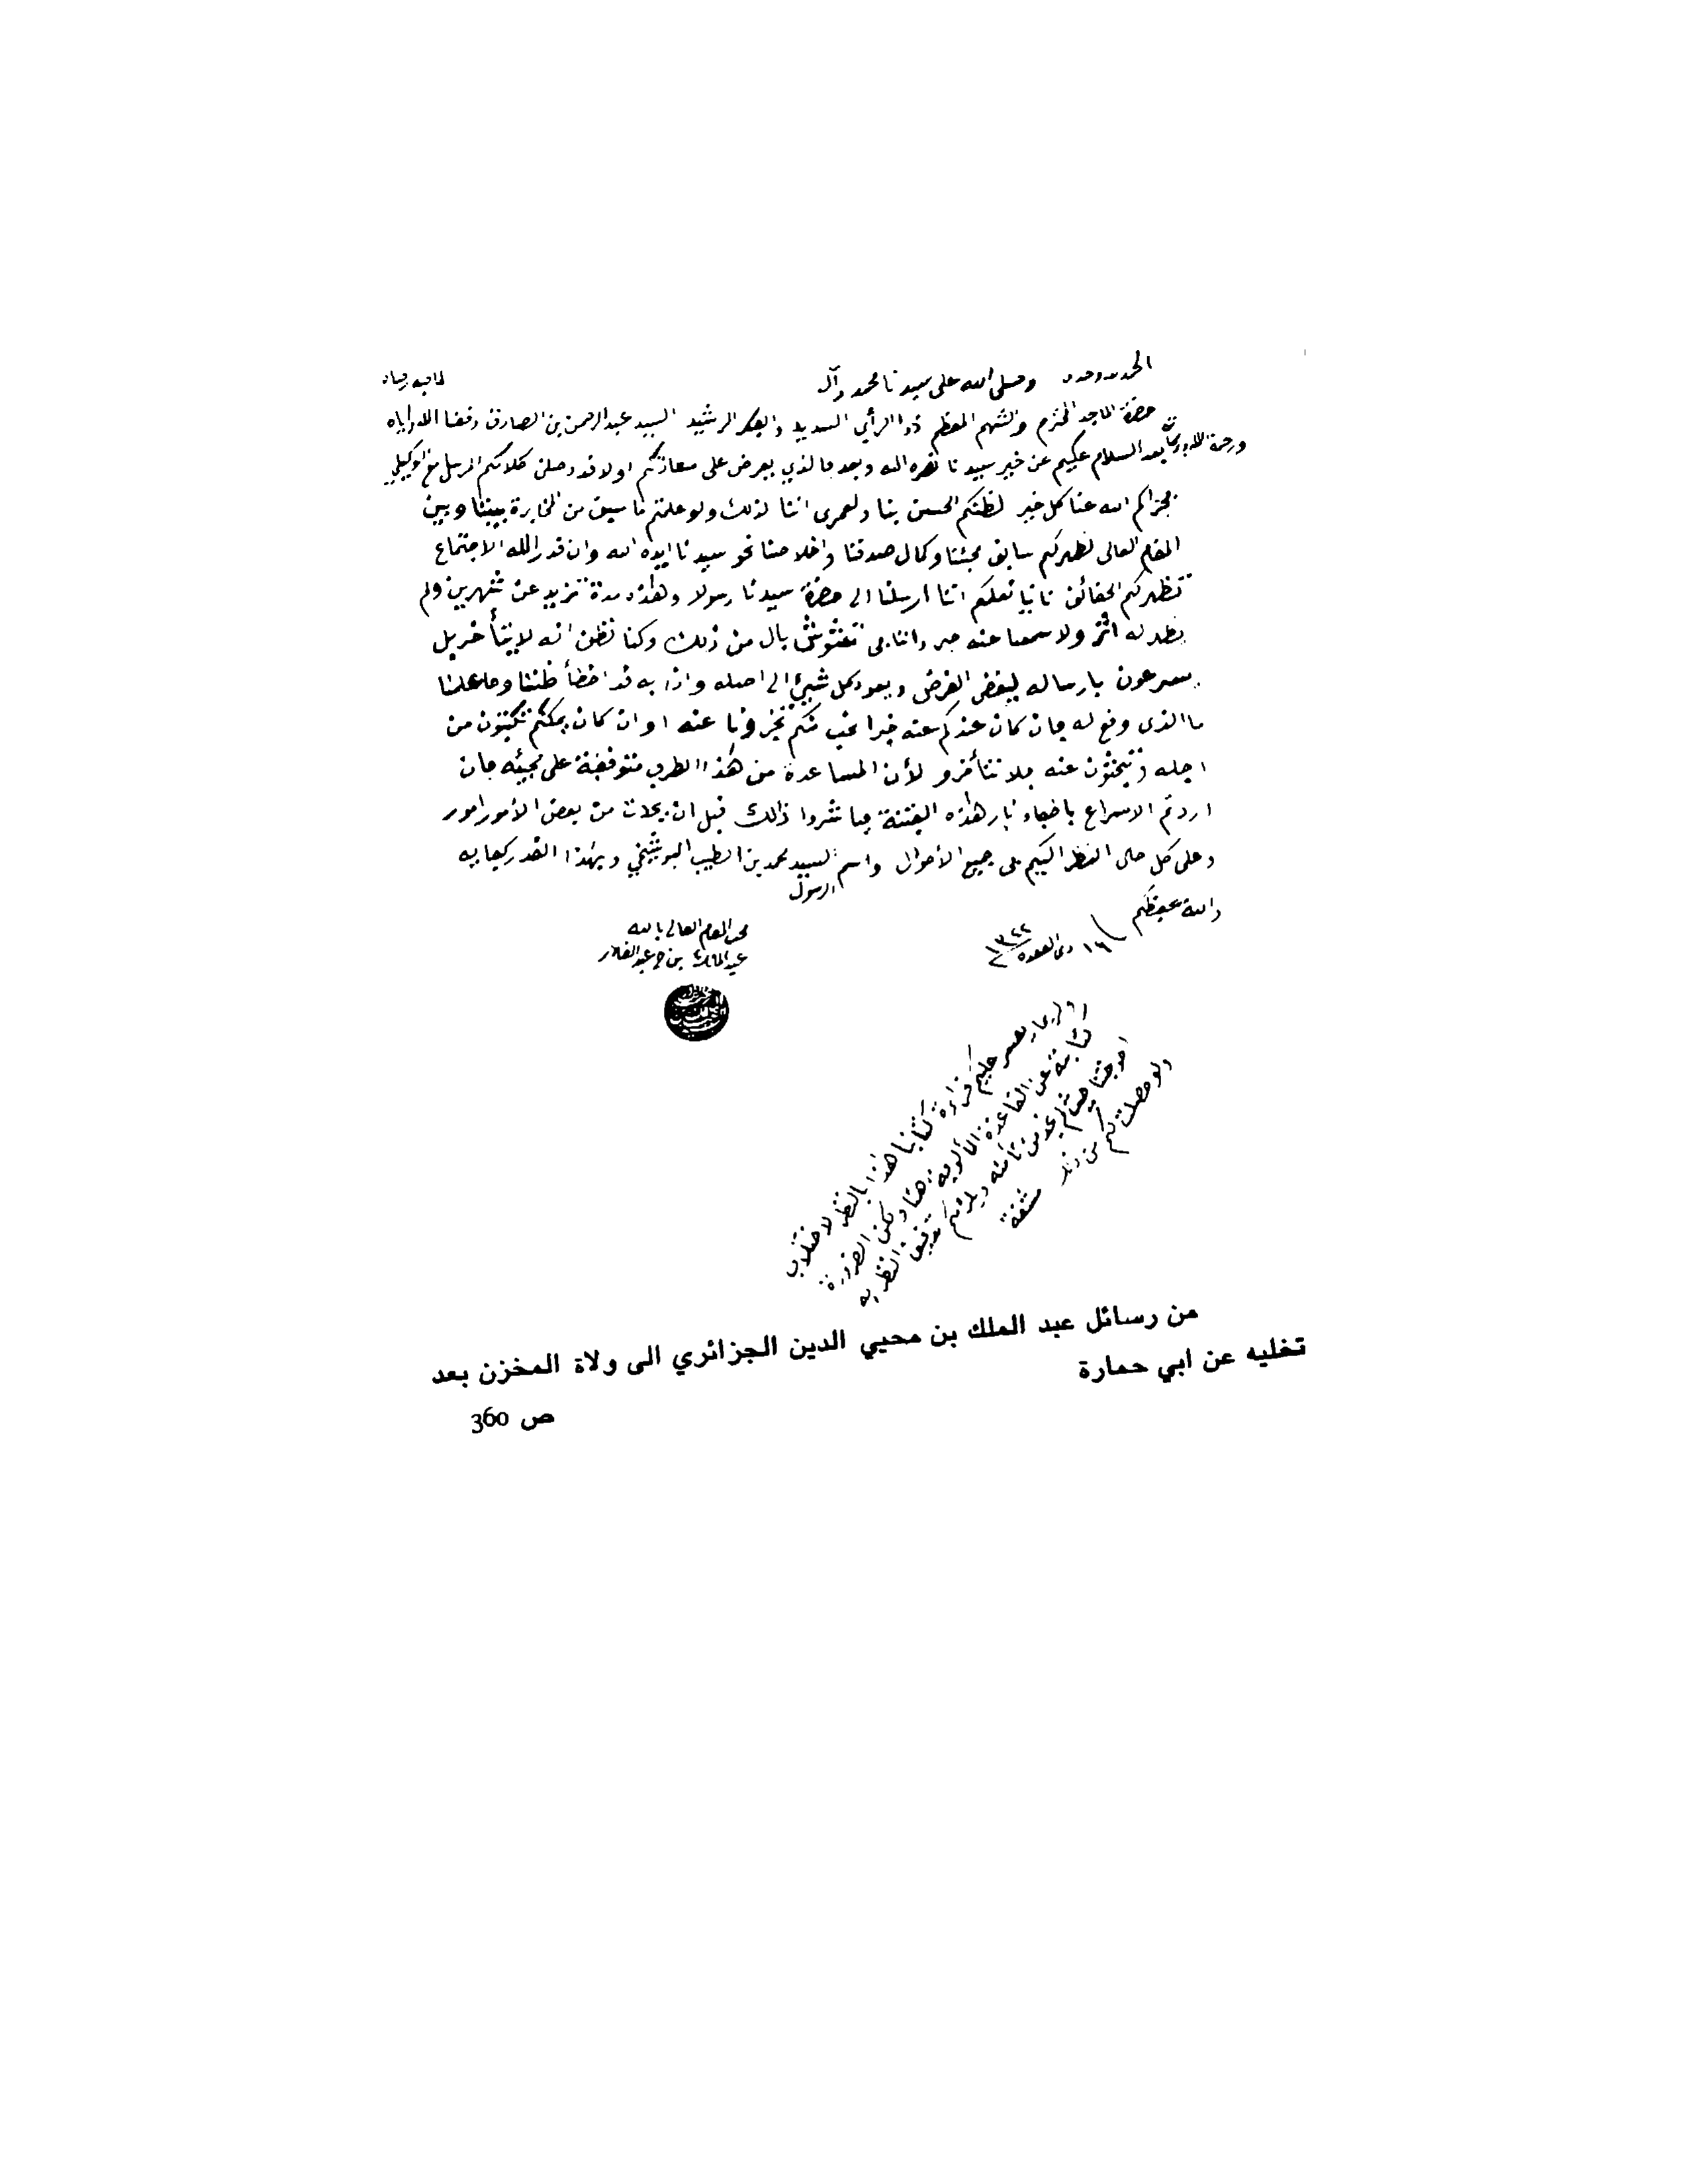 الحمد لله وحده وصلى الله على سيدنا محمد وآله
حضرة الماجد المحترم والشهم المعظم ذو الرأي السديد والفكر الرشيد السيد عبد الرحمن بن الصادق وفقنا الله واياه
بعد السلام عليكم ورحمة الله وبركاته عن خير سيدنا نصره الله وبعد فالذي يعرض على سعادتكم اولا قد وصلنى كلامكم المرسل مع
فجزاكم الله عنا كل خير لظنكم الحسن بنا ولعمرى اننا لذلك ولو علمتم ما سبق من المخابرة بيننا وبين
المقام العالى لظهر لكم سابق محبتنا وكمال صدقنا واخلاصنا نحو سيدنا ايده الله وان قدر الله الاجتماع
تظهر لكم الحقائق ثانيا نعلمكم اننا ارسلنا الى حضرة سيدنا رسولا وهذه مدة تزيد عن شهرين ولم
يظهر له اثر ولا سمعنا عنه خبر واننا فى تشويش بال من ذلك وكنا نظن انه لا يتأخر بل
يسرعون بارساله ليقضى الغرض ويعود كل شيئ الى اصله واذا به قد اخطأ ظننا وما علمنا
ما الذى وقع له فان كان عندكم عنه خبرا نحب منكم تخبرونا عنه او ان كان يمكنكم تكتبون من
اجله وتبحثون عنه فلا تتأخرو لأن المساعدة من هذا الطرف متوقفة على مجيئه فان
اردتم الاسراع باطفاء نار هذه الفتنة فباشروا ذالك قبل ان يحدث من بعض الأمور امور
وعلى كل حال النظر اليكم فى جميع الأحوال واسم الرسول السيد محمد بن الطيب البوشيخي وبهذا القدر كفاية
والله يحفظكم ١٦ ذى القعدة ١٣٢٢
محب المقام العالى بالله
عبد المالك بن عبد القادر
عليكم قراءة كتابنا هذا بالنظر لاختلاف
كتابته عن القاعدة المألوفة هنا ولكن الضرورة
احوجتنا
ولو حصلت لكم من ذلك مشقة
من رسائل عبد الملك بن محيي الدين الجزائري الى ولاة المخزن بعد
تخليه عن ابي حمارة
ص 360